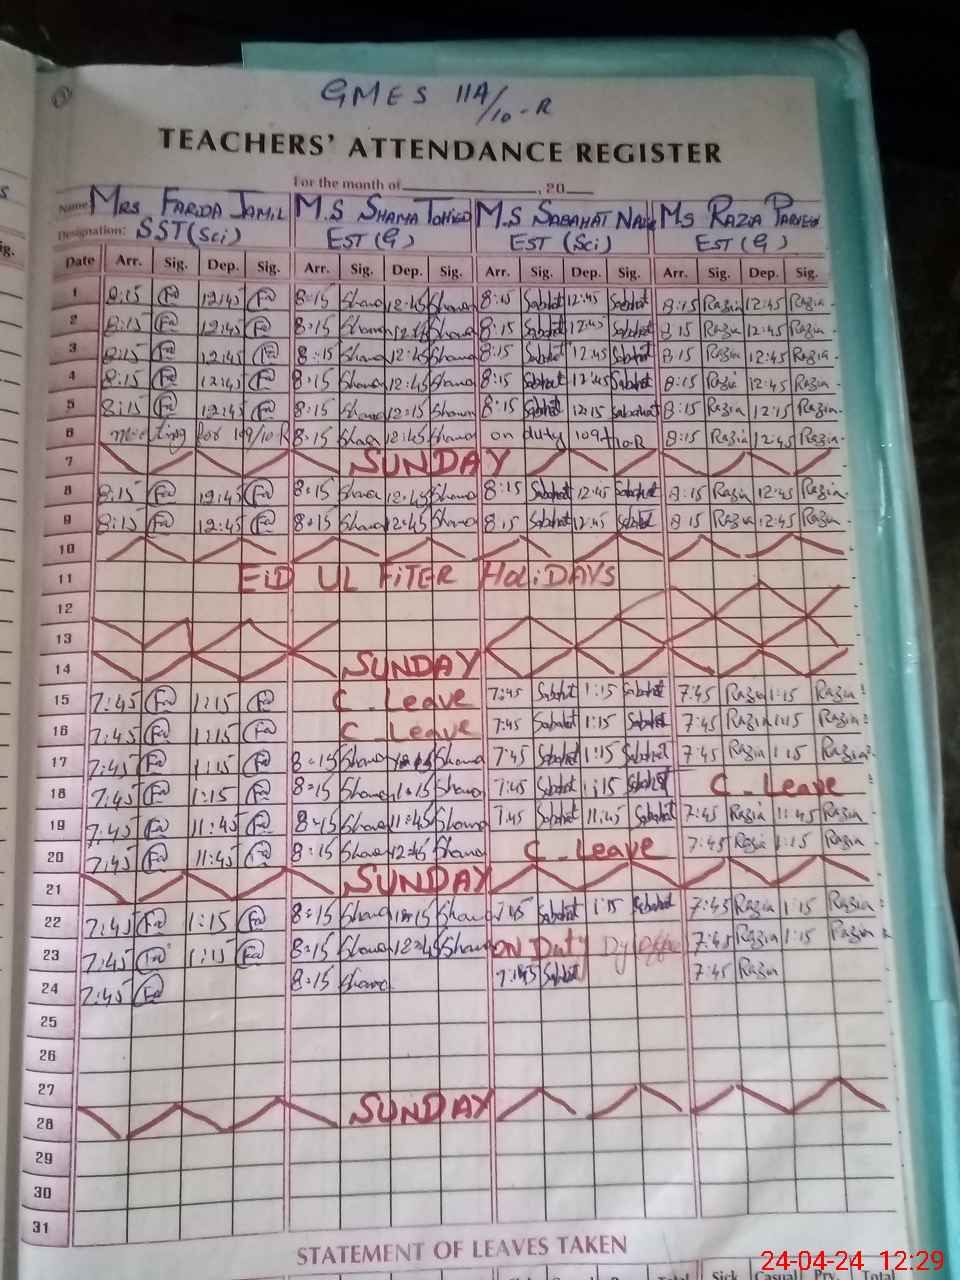 GMES 11A/10-R
TEACHERS' ATTENDANCE REGISTER
For the month of , 20
Name Mrs Farida Jamil M.S Shama M.S Sabahat Ms Razia
Designation: SST(Sci) EST (G) EST (Sci) EST (G)
Date Arr. Sig. Dep. Sig. Arr. Sig. Dep. Sig. Arr. Sig. Dep. Sig. Arr. Sig. Dep. Sig.
1 8:15 12:45 8:15 Shama 12:45 Shama 8:15 Sabahat 12:45 Sabahat 8:15 Razia 12:45 Razia
2 8:15 12:45 8:15 Shama 12:45 Shama 8:15 Sabahat 12:45 Sabahat 8:15 Razia 12:45 Razia
3 8:15 12:45 8:15 Shama 12:45 Shama 8:15 Sabahat 12:45 Sabahat 8:15 Razia 12:45 Razia
4 8:15 12:45 8:15 Shama 12:45 Shama 8:15 Sabahat 12:45 Sabahat 8:15 Razia 12:45 Razia
5 8:15 12:45 8:15 Shama 12:15 Shama 8:15 Sabahat 12:15 Sabahat 8:15 Razia 12:15 Razia
6 Meeting for 109/10-R 8:15 Shama 12:45 Shama on duty 109/10-R 8:15 Razia 12:45 Razia
7 SUNDAY
8 8:15 12:45 8:15 Shama 12:45 Shama 8:15 Sabahat 12:45 Sabahat 8:15 Razia 12:45 Razia
9 8:15 12:45 8:15 Shama 12:45 Shama 8:15 Sabahat 12:45 Sabahat 8:15 Razia 12:45 Razia
10
11 EiD UL FiTER HoLiDAYS
12
13
14 SUNDAY
15 7:45 1:15 C. Leave 7:45 Sabahat 1:15 Sabahat 7:45 Razia 1:15 Razia
16 7:45 1:15 C. Leave 7:45 Sabahat 1:15 Sabahat 7:45 Razia 1:15 Razia
17 7:45 1:15 8:15 Shama Shama 7:45 Sabahat 1:15 Sabahat 7:45 Razia 1:15 Razia
18 7:45 1:15 8:15 Shama 1:15 Shama 7:45 Sabahat 1:15 Sabahat C. Leave
19 7:45 11:45 8:15 Shama 11:45 Shama 7:45 Sabahat 11:45 Sabahat 7:45 Razia 11:45 Razia
20 7:45 11:45 8:15 Shama 12:45 Shama C. Leave 7:45 Razia 1:15 Razia
21 SUNDAY
22 7:45 1:15 8:15 Shama Shama 7:45 Sabahat 1:15 Sabahat 7:45 Razia 1:15 Razia
23 7:45 1:15 8:15 Shama 12:45 Shama ON Duty 7:45 Razia 1:15 Razia
24 7:45 8:15 Shama 7:45 Sabahat 7:45 Razia
25
26
27
28 SUNDAY
29
30
31
STATEMENT OF LEAVES TAKEN
Sick Casual Prv. Total
24-04-24 12:29